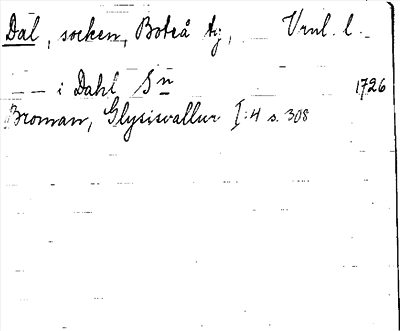 Dal, socken, Boteå tg, Vrnl. l.
— — i Dahl Sn 1726
Broman, Glysisvallur I:4 s. 308